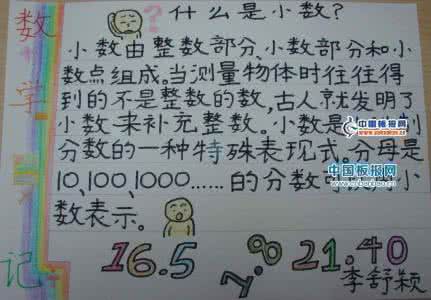 什么是小数?
小数由整数部分、小数部分和小
数点组成。当测量物体时往往得
到的不是整数的数,古人就发明了
小数来补充整数。小数是
分数的一种特殊表现式。分母是
10,100,1000……的分数可 小
数表示。
16.5 7.8 21.40
李舒颖
数
学
记
中国板报网
中国板报网